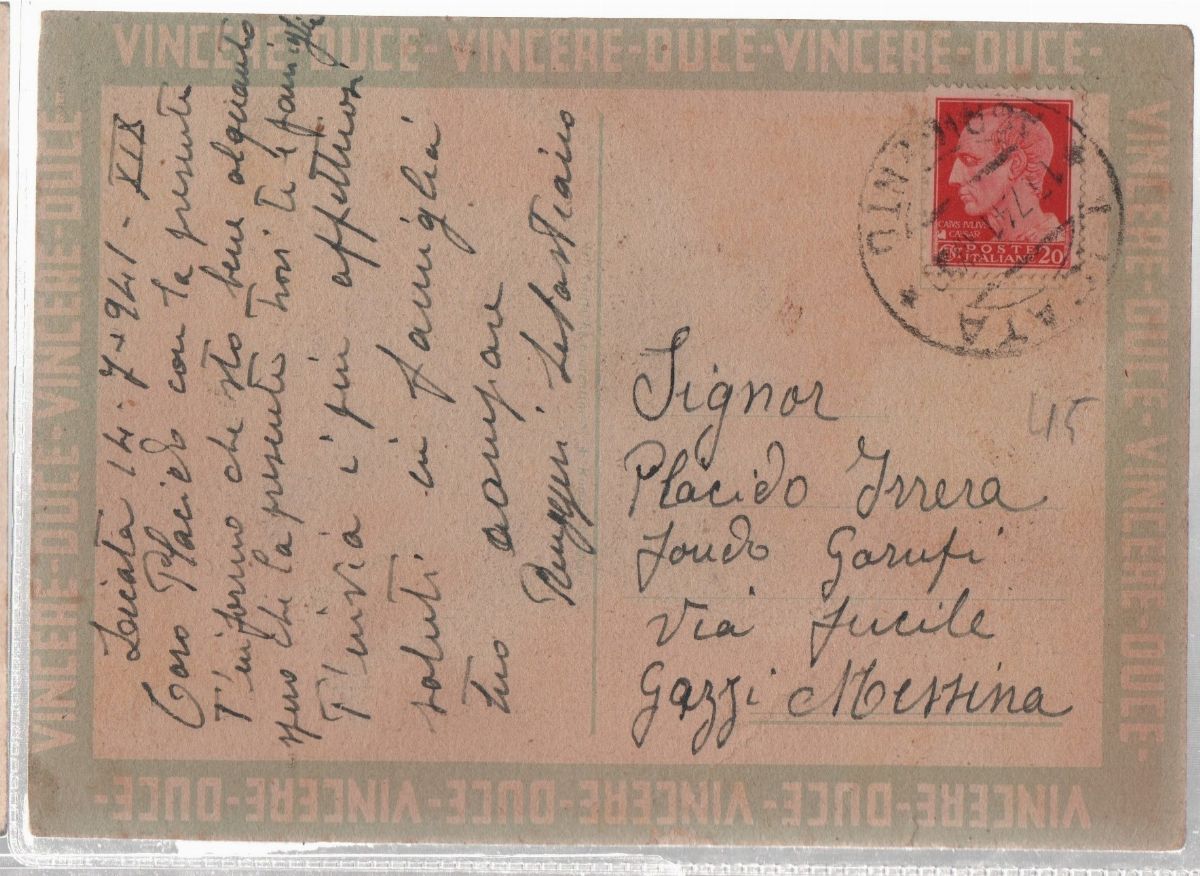 VINCERE-DUCE-VINCERE-DUCE-VINCERE-DUCE-
VINCERE-DUCE-VINCERE-DUCE-
VINCERE-DUCE-VINCERE-DUCE-
VINCERE-DUCE-VINCERE-DUCE-VINCERE-DUCE-
Licata 14-7-941-XIX
Caro Placido con la presente
T'informo che sto bene alquanto
spero che la presente trovi te e famiglia
T'invia i più affettuosi
saluti in famiglia
tuo compare
Ruggeri Sebastiano
CAIVS IVLIVS
CAESAR
POSTE
ITALIANE 20
LICATA
Signor
Placido Irrera
fondo Garufi
Via Fucile
Gazzi Messina
45